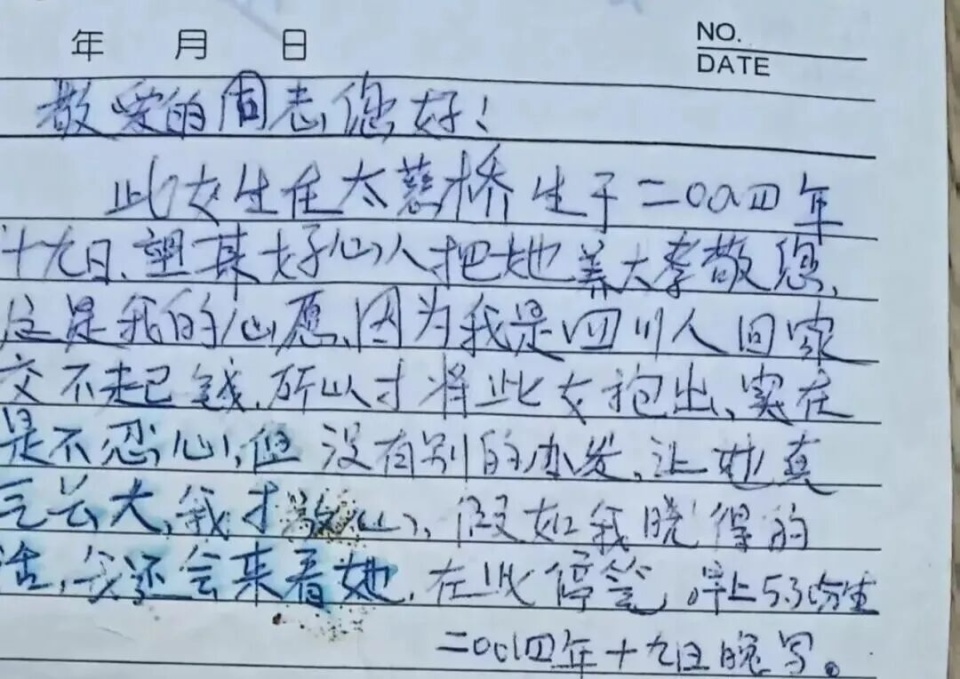 年 月 日 NO.
DATE
敬爱的同志,您好!
此女生住太慈桥生于二00四年
十九日,望某好心人把她养大孝敬您,
这是我的心愿,因为我是四川人回家
交不起钱,所以才将此女抱出,实在
是不忍心,但没有别的办发,让她真
气长大,我才放心,假如我晓得的
话,我还会来看她,在此停笔,早上5.30分生
二00四年十九日晚写。